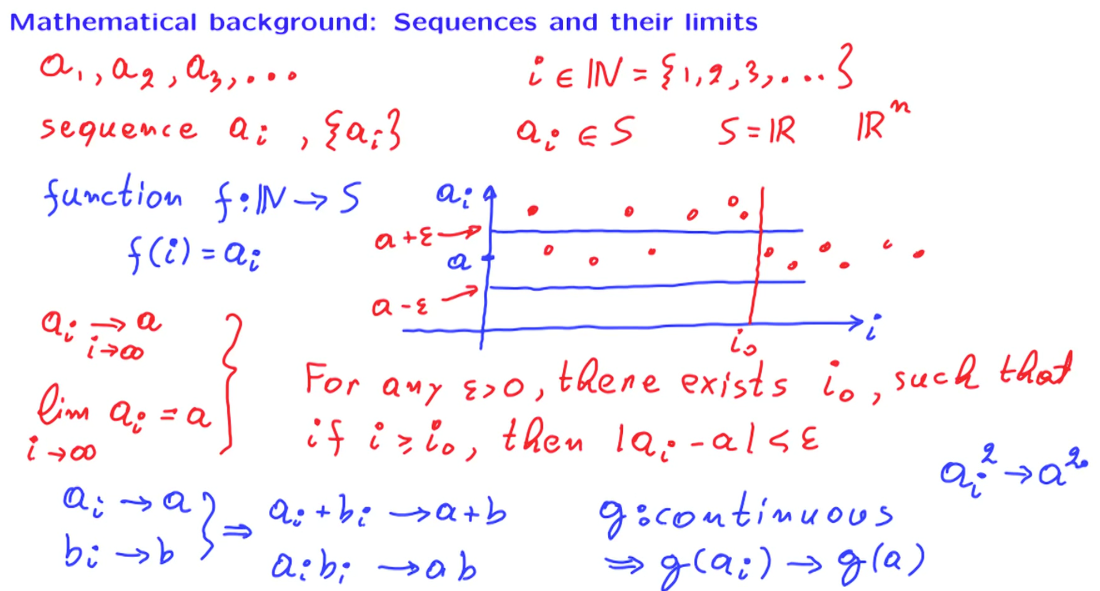 Mathematical background: Sequences and their limits
a₁, a₂, a₃, ...
i ∈ ℕ = {1, 2, 3, ...}
sequence aᵢ, {aᵢ}
aᵢ ∈ S S = ℝ ℝⁿ
function f: ℕ → S
f(i) = aᵢ
aᵢ
a+ε
a
a-ε
i₀
i
aᵢ → a
i→∞
lim aᵢ = a
i→∞
For any ε>0, there exists i₀, such that
if i ≥ i₀, then |aᵢ - a| < ε
aᵢ → a
bᵢ → b
⇒
aᵢ + bᵢ → a+b
aᵢbᵢ → ab
g: continuous
⇒ g(aᵢ) → g(a)
aᵢ² → a²